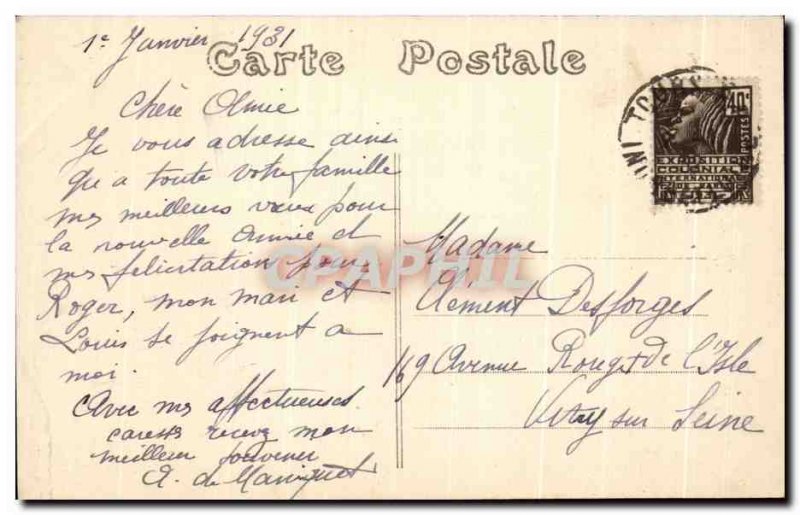 1e Janvier 1931
Carte Postale
Chère
Je vous adresse ainsi
qu a toute votre famille
mes meilleurs vœux pour
la nouvelle Année et
mes felicitation pour
Roger, mon mari et
Louis se joignent a
moi.
Avec mes affectueuses
caresses recevez mon
meilleur souvenir
A. de
Madame
Clément Desforges
169 Avenue Rouget de l'Isle
Vitry sur Seine
40c
POSTES
EXPOSITION
COLONIALE
INTERNATIONALE
CPAPHIL